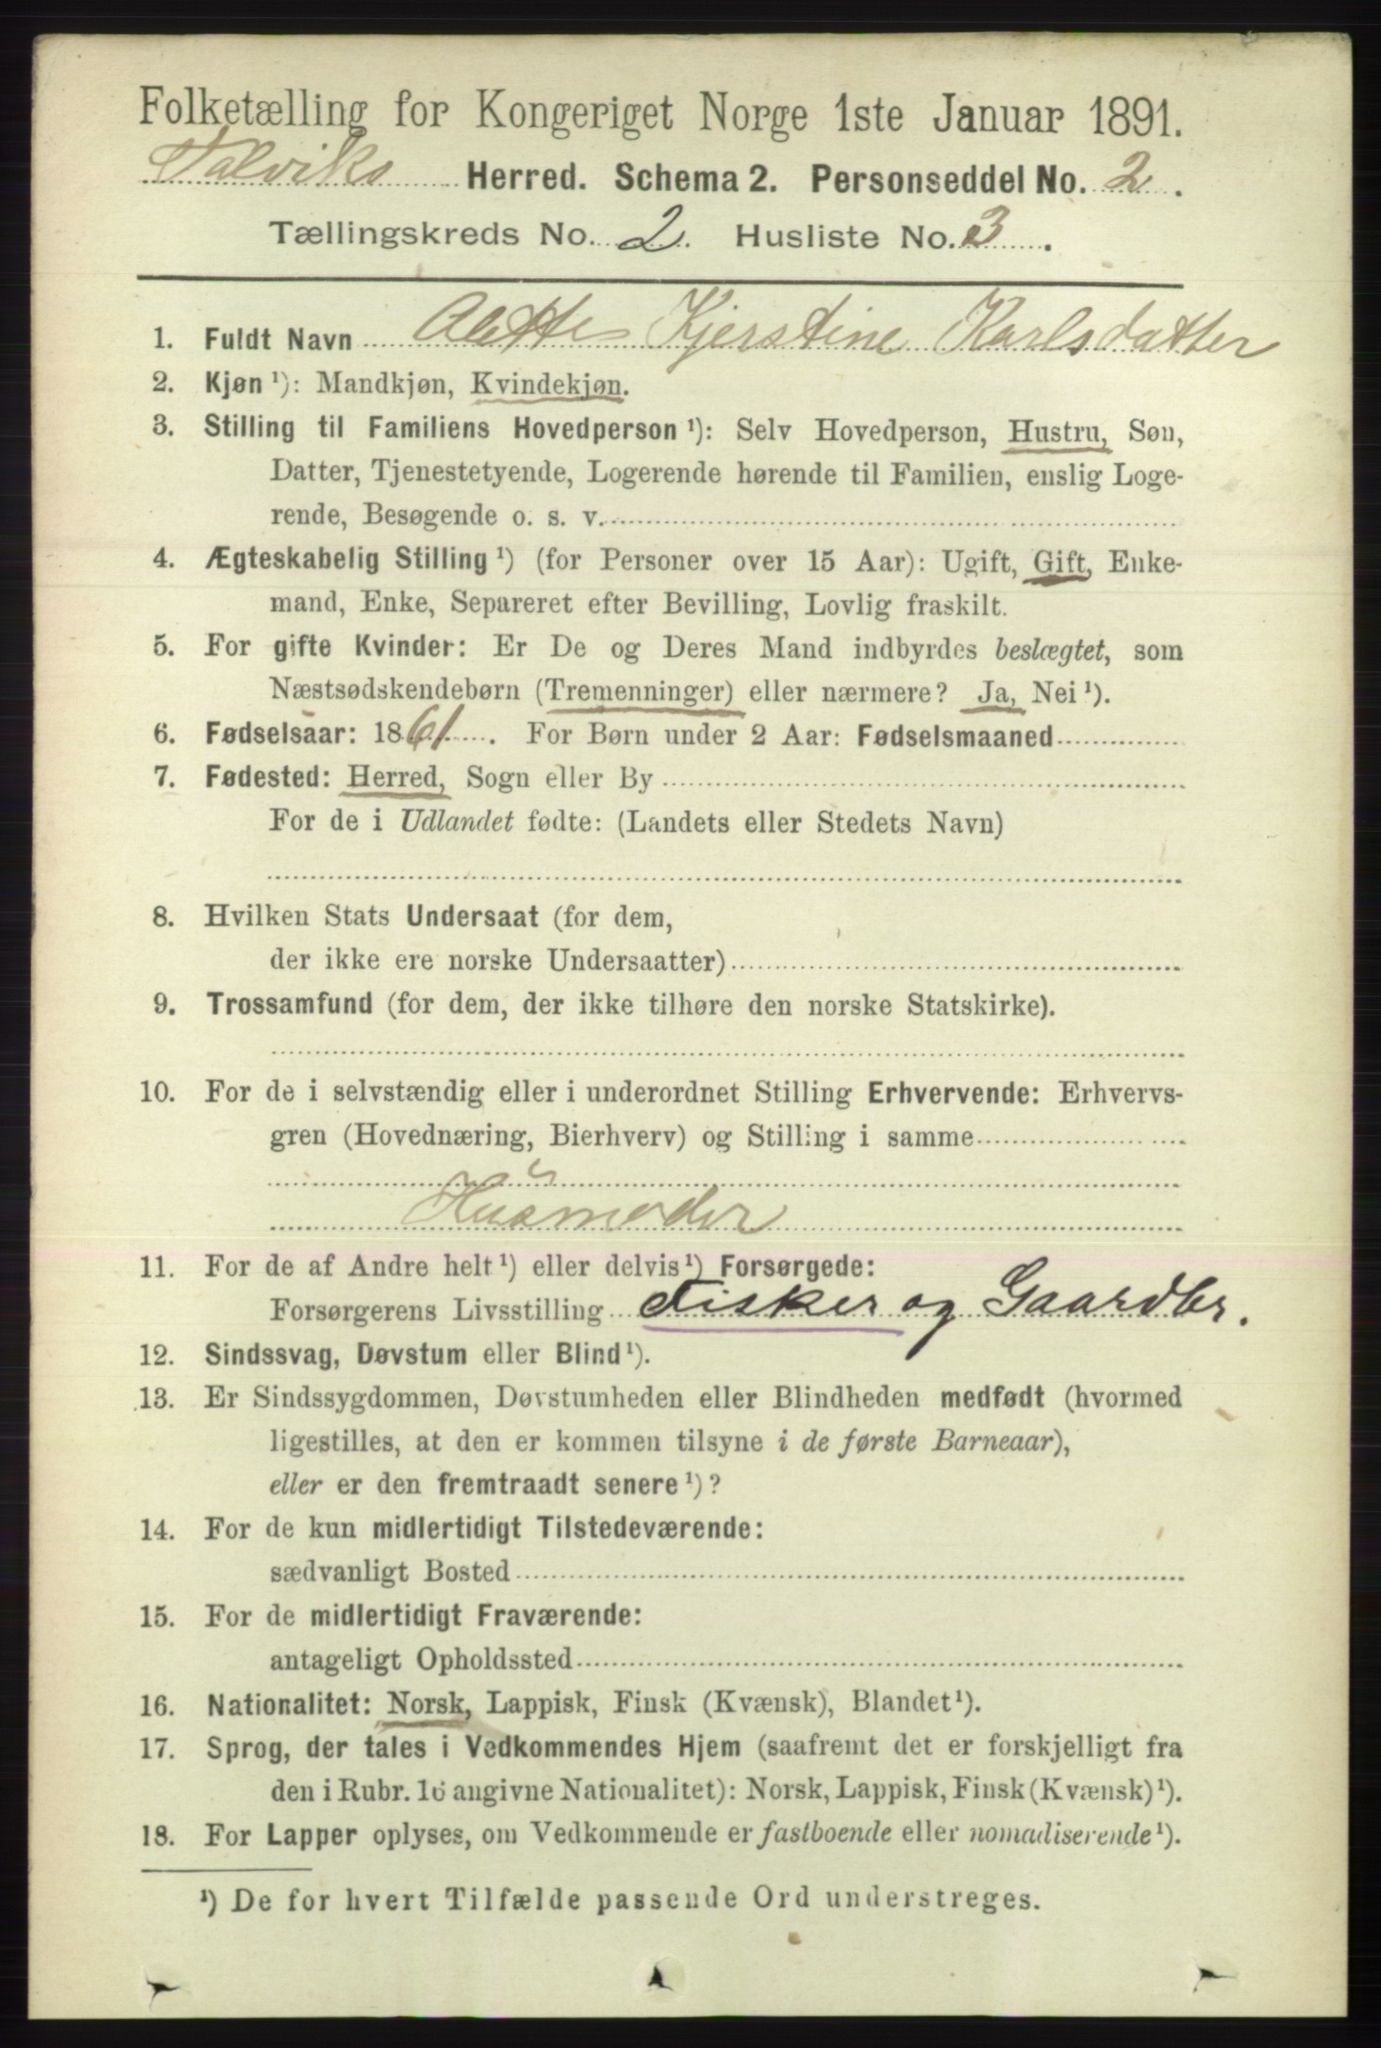 Folketælling for Kongeriget Norge 1ste Januar 1891.
Talviks Herred. Schema 2. Personseddel No. 2.
Tællingskreds No. 2. Husliste No. 3.
1. Fuldt Navn Alette Kjerstine Karlsdatter
2. Kjøn ¹): Mandkjøn, Kvindekjøn.
3. Stilling til Familiens Hovedperson ¹): Selv Hovedperson, Hustru, Søn,
Datter, Tjenestetyende, Logerende hørende til Familien, enslig Loge-
rende, Besøgende o. s. v.
4. Ægteskabelig Stilling ¹) (for Personer over 15 Aar): Ugift, Gift, Enke-
mand, Enke, Separeret efter Bevilling, Lovlig fraskilt.
5. For gifte Kvinder: Er De og Deres Mand indbyrdes beslægtet, som
Næstsødskendebørn (Tremenninger) eller nærmere? Ja, Nei ¹).
6. Fødselsaar: 1861. For Børn under 2 Aar: Fødselsmaaned
7. Fødested: Herred, Sogn eller By
For de i Udlandet fødte: (Landets eller Stedets Navn)
8. Hvilken Stats Undersaat (for dem,
der ikke ere norske Undersaatter)
9. Trossamfund (for dem, der ikke tilhøre den norske Statskirke).
10. For de i selvstændig eller i underordnet Stilling Erhvervende: Erhvervs-
gren (Hovednæring, Bierhverv) og Stilling i samme
Husmoder
11. For de af Andre helt ¹) eller delvis ¹) Forsørgede:
Forsørgerens Livsstilling Fisker og Gaardbr.
12. Sindssvag, Døvstum eller Blind ¹).
13. Er Sindssygdommen, Døvstumheden eller Blindheden medfødt (hvormed
ligestilles, at den er kommen tilsyne i de første Barneaar),
eller er den fremtraadt senere ¹)?
14. For de kun midlertidigt Tilstedeværende:
sædvanligt Bosted
15. For de midlertidigt Fraværende:
antageligt Opholdssted
16. Nationalitet: Norsk, Lappisk, Finsk (Kvænsk), Blandet ¹).
17. Sprog, der tales i Vedkommendes Hjem (saafremt det er forskjelligt fra
den i Rubr. 16 angivne Nationalitet): Norsk, Lappisk, Finsk (Kvænsk) ¹).
18. For Lapper oplyses, om Vedkommende er fastboende eller nomadiserende ¹).
¹) De for hvert Tilfælde passende Ord understreges.